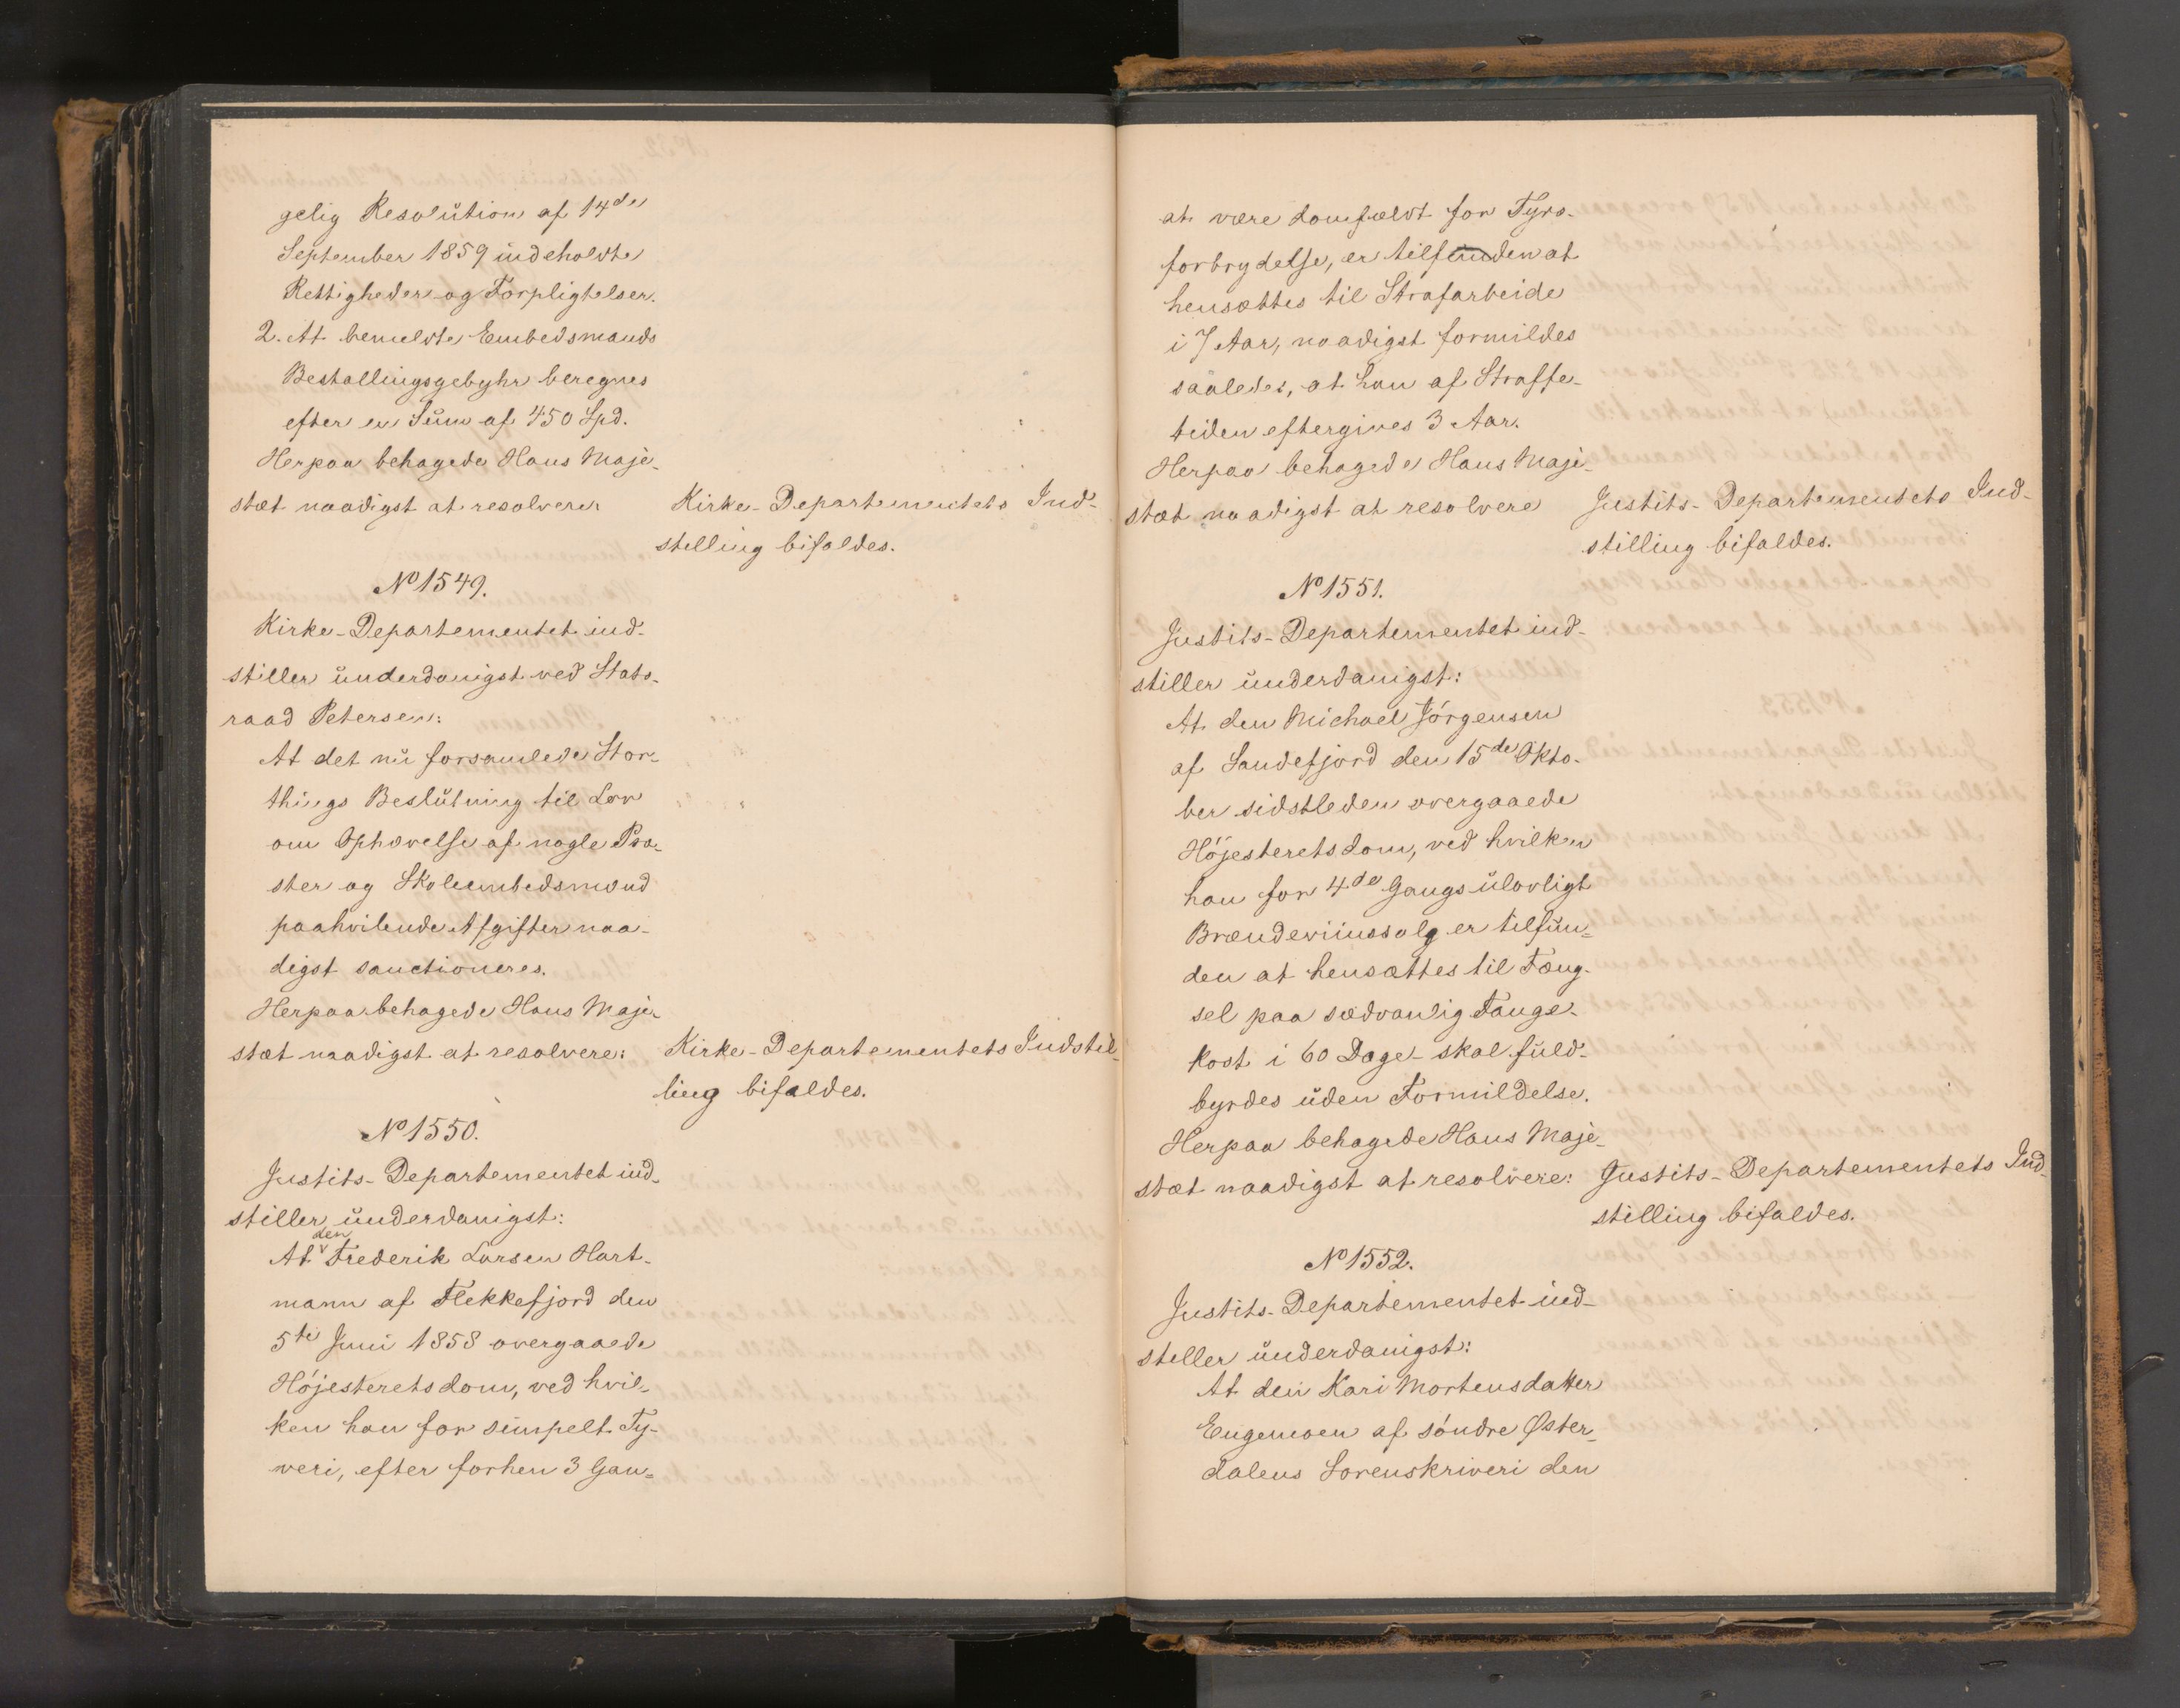 gelig Resolution af 14de
September 1859 indeholdte
Rettigheder og Forpligtelser.
2. At bemeldte Embedsmands
Bestallingsgebyhr beregnes
efter en Sum af 450 Spd.
Herpaa behagede Hans Maje-
stæt naadigst at resolvere:
Kirke-Departementets Ind-
stilling bifaldes.
No 1549.
Kirke-Departementet ind-
stiller underdanigst ved Stats-
raad Petersen:
At det nu forsamlede Stor-
things Beslutning til Lov
om Ophævelse af nogle Præ-
ster og Skoleembedsmænd
paahvilende Afgifter naa-
digst sanctioneres.
Herpaa behagede Hans Maje-
stæt naadigst at resolvere:
Kirke-Departementets Indstil-
ling bifaldes.
No 1550.
Justits-Departementet ind-
stiller underdanigst:
At den Frederik Larsen Hart-
mann af Flekkefjord den
5te Juni 1858 overgaaede
Höjesteretsdom, ved hvil-
ken han for simpelt Ty-
veri, efter forhen 3 Gan-
at være domfældt for Tyvs-
forbrydelse, er tilfunden at
hensættes til Strafarbeide
i 7 Aar, naadigst formildes
saaledes, at ham af Straffe-
tiden eftergives 3 Aar.
Herpaa behagede Hans Maje-
stæt naadigst at resolvere
Justits-Departementets Ind-
stilling bifaldes.
No 1551.
Justits-Departementet ind-
stiller underdanigst:
At den Michael Jörgensen
af Sandefjord den 15de Okto-
ber sidstleden overgaaede
Höjesteretsdom, ved hvilken
han for 4de Gangs ulovligt
Brændeviinssalg er tilfun-
den at hensættes til Fæng-
sel paa sædvanlig Fange-
kost i 60 Dage - skal fuld-
byrdes uden Formildelse.
Herpaa behagede Hans Maje-
stæt naadigst at resolvere:
Justits-Departementets Ind-
stilling bifaldes.
No 1552.
Justits-Departementet ind-
stiller underdanigst:
At den Kari Mortensdatter
Engemoen af söndre Øster-
dalens Sorenskriveri den